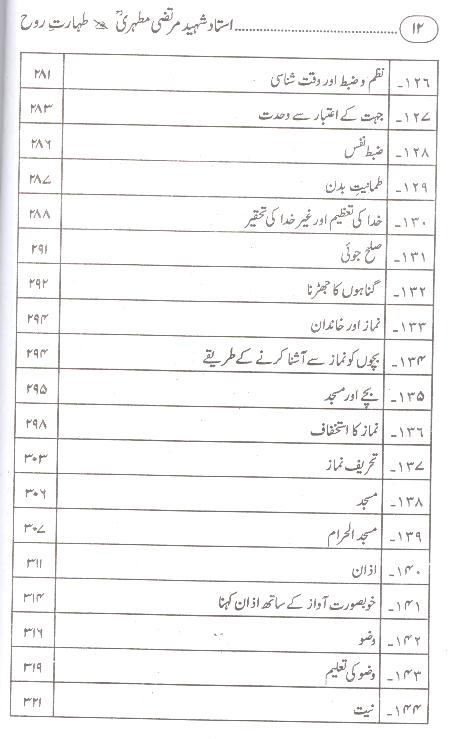 ۱۲ ........................ استاد شہید مرتضی مطہریؒ طہارتِ روح
۱۲۶۔ نظم و ضبط اور وقت شناسی ۲۸۱
۱۲۷۔ جہت کے اعتبار سے وحدت ۲۸۳
۱۲۸۔ ضبط نفس ۲۸۶
۱۲۹۔ طمانیتِ بدن ۲۸۷
۱۳۰۔ خدا کی تعظیم اور غیر خدا کی تحقیر ۲۸۸
۱۳۱۔ صلح جوئی ۲۹۱
۱۳۲۔ گناہوں کا جھڑنا ۲۹۲
۱۳۳۔ نماز اور خاندان ۲۹۴
۱۳۴۔ بچوں کو نماز سے آشنا کرنے کے طریقے ۲۹۴
۱۳۵۔ بچے اور مسجد ۲۹۵
۱۳۶۔ نماز کا استخفاف ۲۹۸
۱۳۷۔ تحریف نماز ۳۰۳
۱۳۸۔ مسجد ۳۰۶
۱۳۹۔ مسجد الحرام ۳۰۷
۱۴۰۔ اذان ۳۱۱
۱۴۱۔ خوبصورت آواز کے ساتھ اذان کہنا ۳۱۴
۱۴۲۔ وضو ۳۱۶
۱۴۳۔ وضو کی تعلیم ۳۱۹
۱۴۴۔ نیت ۳۲۱